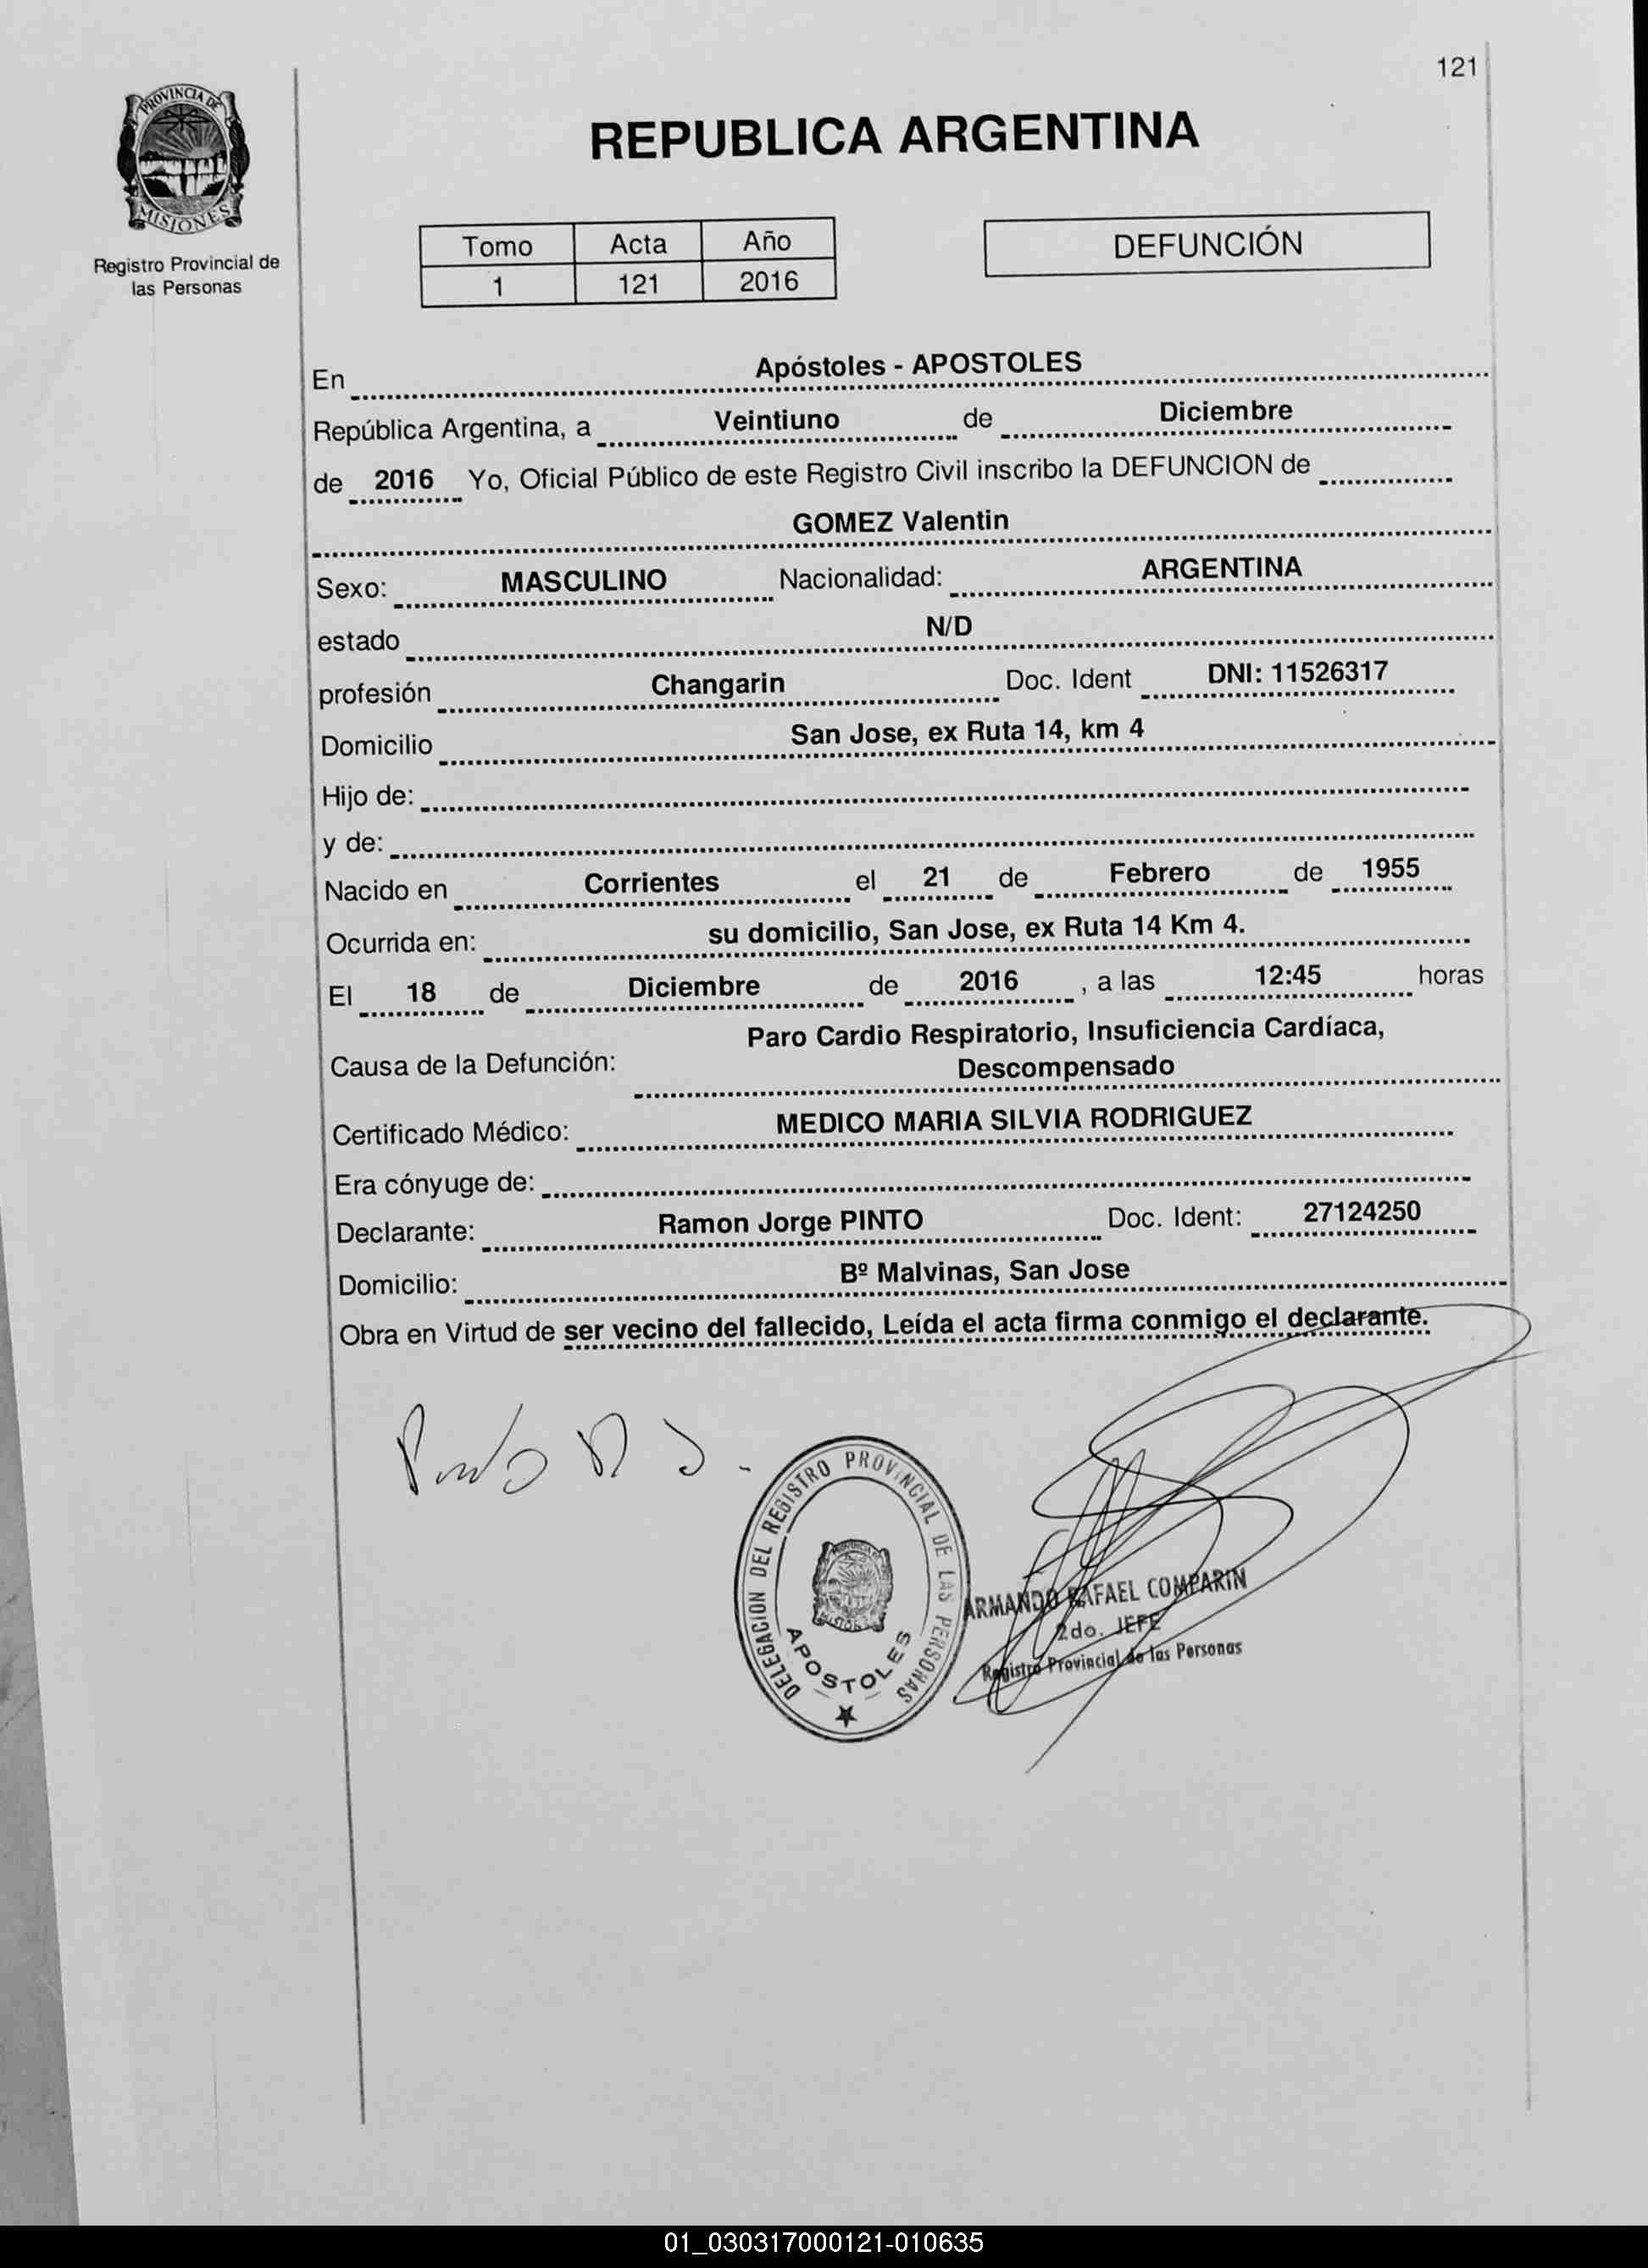 121
PROVINCIA DE
MISIONES
Registro Provincial de
las Personas
REPUBLICA ARGENTINA
Tomo Acta Año
1 121 2016
DEFUNCIÓN
En Apóstoles - APOSTOLES
República Argentina, a Veintiuno de Diciembre
de 2016 Yo, Oficial Público de este Registro Civil inscribo la DEFUNCION de
GOMEZ Valentin
Sexo: MASCULINO Nacionalidad: ARGENTINA
estado N/D
profesión Changarin Doc. Ident DNI: 11526317
Domicilio San Jose, ex Ruta 14, km 4
Hijo de:
y de:
Nacido en Corrientes el 21 de Febrero de 1955
Ocurrida en: su domicilio, San Jose, ex Ruta 14 Km 4.
El 18 de Diciembre de 2016 , a las 12:45 horas
Paro Cardio Respiratorio, Insuficiencia Cardíaca,
Causa de la Defunción: Descompensado
Certificado Médico: MEDICO MARIA SILVIA RODRIGUEZ
Era cónyuge de:
Declarante: Ramon Jorge PINTO Doc. Ident: 27124250
Domicilio: Bº Malvinas, San Jose
Obra en Virtud de ser vecino del fallecido, Leída el acta firma conmigo el declarante.
DELEGACION DEL REGISTRO PROVINCIAL DE LAS PERSONAS
APOSTOLES
ARMANDO RAFAEL COMPARIN
2do. JEFE
Registro Provincial de las Personas
01_030317000121-010635